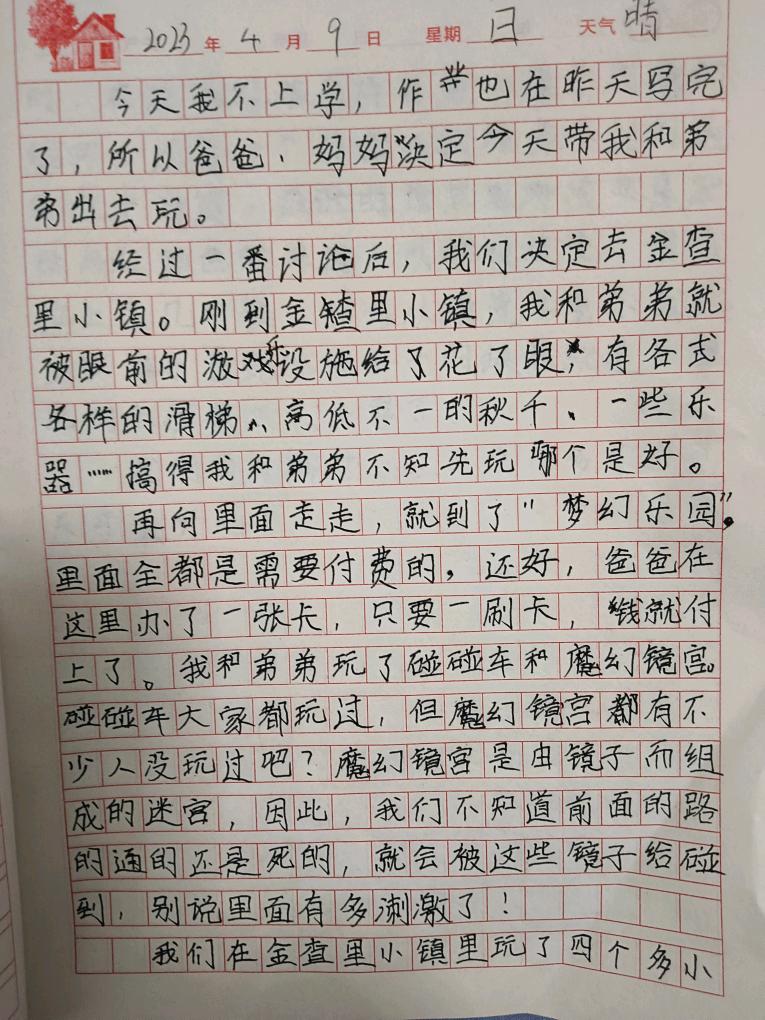 2023年4月9日 星期日 天气晴
今天我不上学，作业也在昨天写完
了，所以爸爸、妈妈决定今天带我和弟
弟出去玩。
经过一番讨论后，我们决定去金查
里小镇。刚到金楂里小镇，我和弟弟就
被眼前的游戏乐设施给了花了眼，有各式
各样的滑梯、高低不一的秋千、一些乐
器……搞得我和弟弟不知先玩哪个是好。
再向里面走走，就到了“梦幻乐园”。
里面全都是需要付费的，还好，爸爸在
这里办了一张卡，只要一刷卡，钱就付
上了。我和弟弟玩了碰碰车和魔幻镜宫。
碰碰车大家都玩过，但魔幻镜宫都有不
少人没玩过吧？魔幻镜宫是由镜子而组
成的迷宫，因此，我们不知道前面的路
的通的还是死的，就会被这些镜子给碰
到，别说里面有多刺激了！
我们在金查里小镇里玩了四个多小